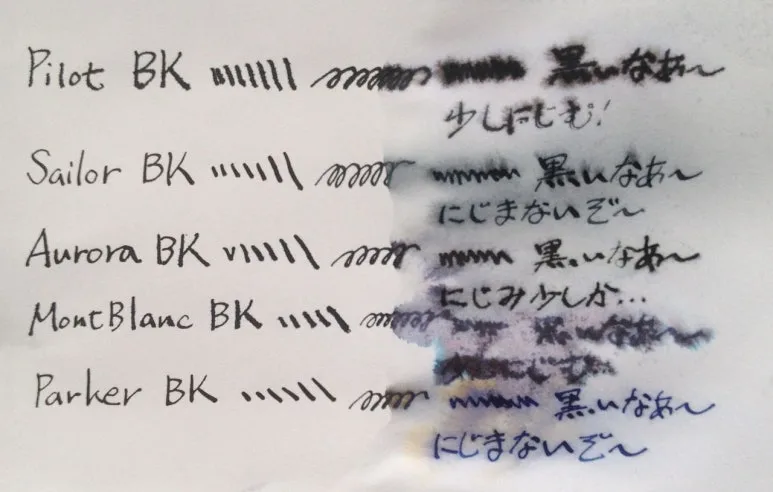 Pilot BK 黒いなあ〜
少しにじむ!
Sailor BK 黒いなあ〜
にじまないぞ〜
Aurora BK 黒いなあ〜
にじみ少しか...
MontBlanc BK 黒いなあ〜
にじむ
Parker BK 黒いなあ〜
にじまないぞ〜